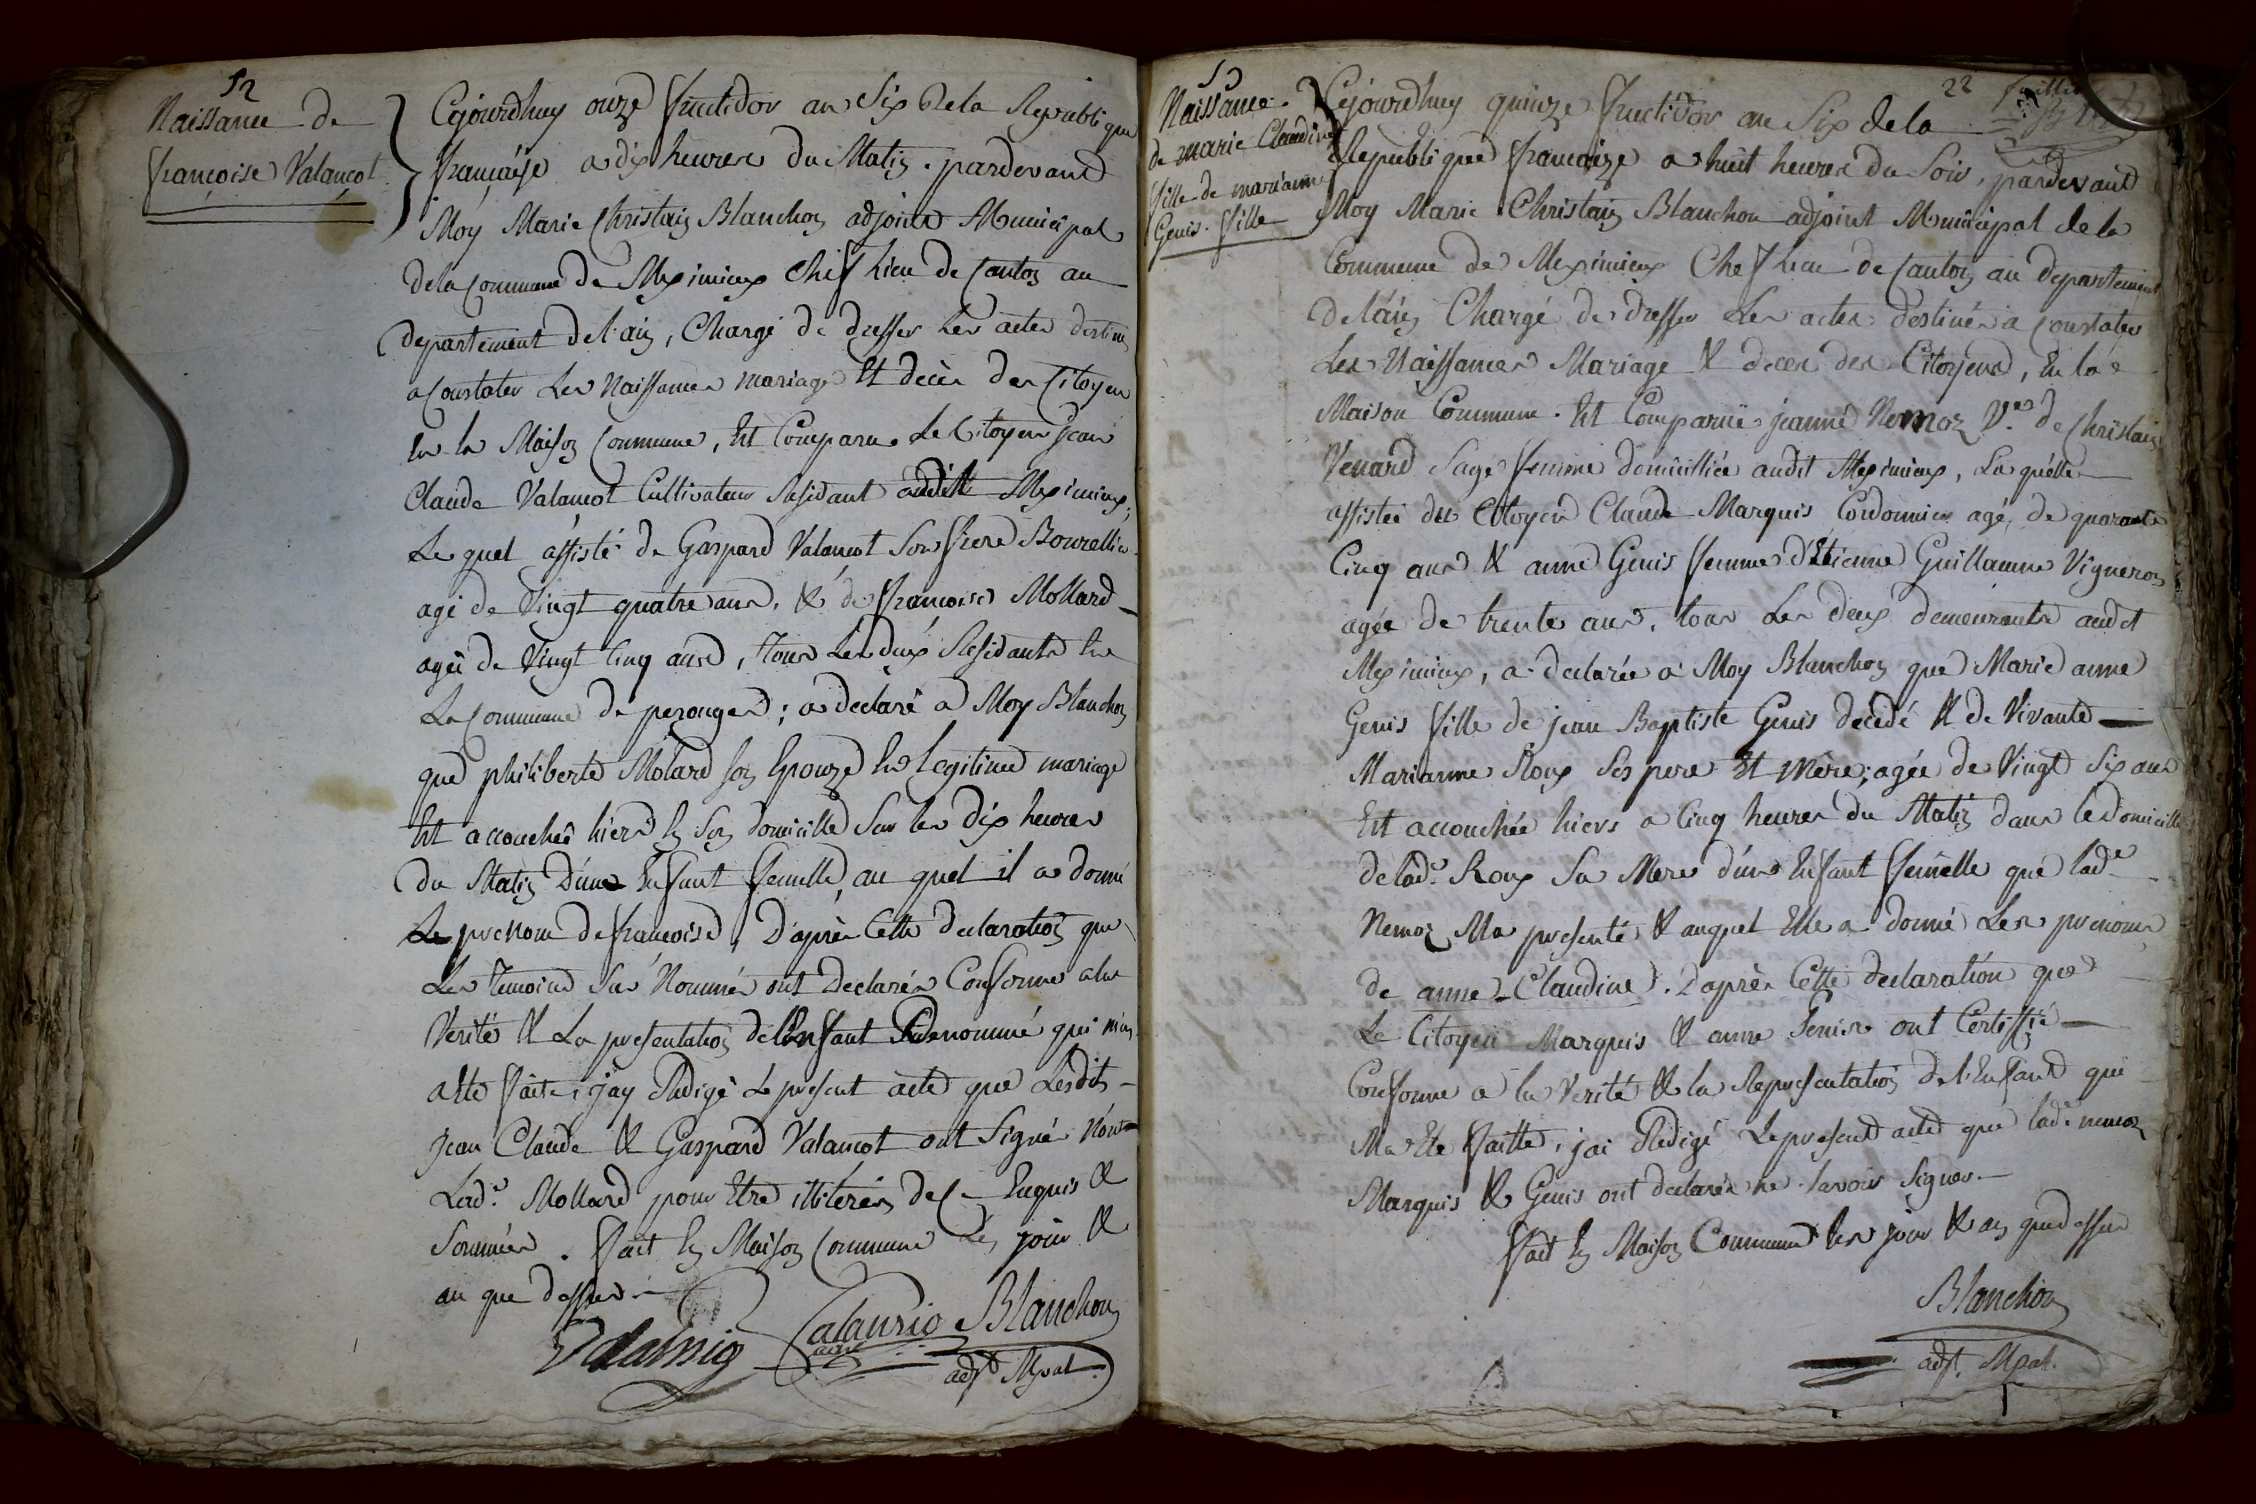 52
Naissance de
françoise Valançot
Cejourdhuy onze fructidor an Six de la Republique
françaize a dix heures du Matin. pardevant
Moy Marie Christain Blanchon adjoint Municipal
dela Commune de Meximieux Chef lieu de Canton au
departement del'ain, Chargé de dresser les actes destinés
a Constater Les Naissances mariage Et décès des Citoyens
En la Maison Commune, Est Comparu Le Citoyen Jean
Claude Valançot Cultivateur Residant audit Meximieux,
Le quel assisté de Gaspard Valançot Son frere Bourellier
agé de Vingt quatre ans, & de françoise Mollard
agée de Vingt Cinq ans, tous Les deux Residants En
La Commune de perouges; a declaré a Moy Blanchon
que philiberte Molard son Epouze En Legitime mariage
Est accouchée hier En Son domicille Sur les dix heures
du Matin D'une Enfant femelle, au quel il a donné
Le prenom de françoise, D'après Cette declaration que
Les temoins Sus Nommés ont Declarés Conforme a la
Verité & La presentation del'Enfant Denommé qui m'a
alté faite, j'ay Redigé Le present acte que Lesdits
Jean Claude & Gaspard Valançot ont Signé Non
Lade. Mollard pour Etre illiterée de Ce Enquis &
Sommée. fait En Maison Commune Les jour &
an que dessus
Blanchon
adjt. Mpal.
22
Naissance
de marie Claudine
fille de marianne
Genis. fille
Cejourdhuy quinze fructidor an Six de la
Republique françaize a huit heures du Soir, pardevant
Moy Marie Christain Blanchon adjoint Municipal de la
Commune de Meximieux Chef lieu de Canton au departement
De l'ain Chargé de dresser Les actes destinés a Constater
Les Naissances Mariage & décès des Citoyens, En la
Maison Commune. Est Comparüe jeanne Nemoz Ve. de Christain
Venard Sage femme domicilliée audit Meximieux, La quelle
assistée du Citoyen Claude Marquis Cordonnier agé de quarante
Cinq ans & anne Genis femme d'Etienne Guillaume Vigneron
agée de trente ans, tous Les deux demeurants audit
Meximieux, a declarée a Moy Blanchon que Marie anne
Genis fille de jean Baptiste Genis decedé & de Vivante
Marianne Roux Ses pere Et Mère; agée de Vingt Six ans
Est accouchée hiers a Cinq heures du Matin dans le domicille
de lade. Roux Sa Mere d'une Enfant femelle que lade.
Nemoz Ma presenté & auquel Elle a donné Les prenoms
de anne Claudine. D'après Cette declaration que
Le Citoyen Marquis & anne Genis ont Certiffié
Conforme a la Verité & la Representation de l'Enfant qui
Ma Ete faitte, j'ai Redigé Le present acte que lade. nemoz
Marquis & Genis ont declarés ne Savoir Signer.
fait En Maison Commune Les jour & an que dessus
Blanchon
adjt. Mpal.